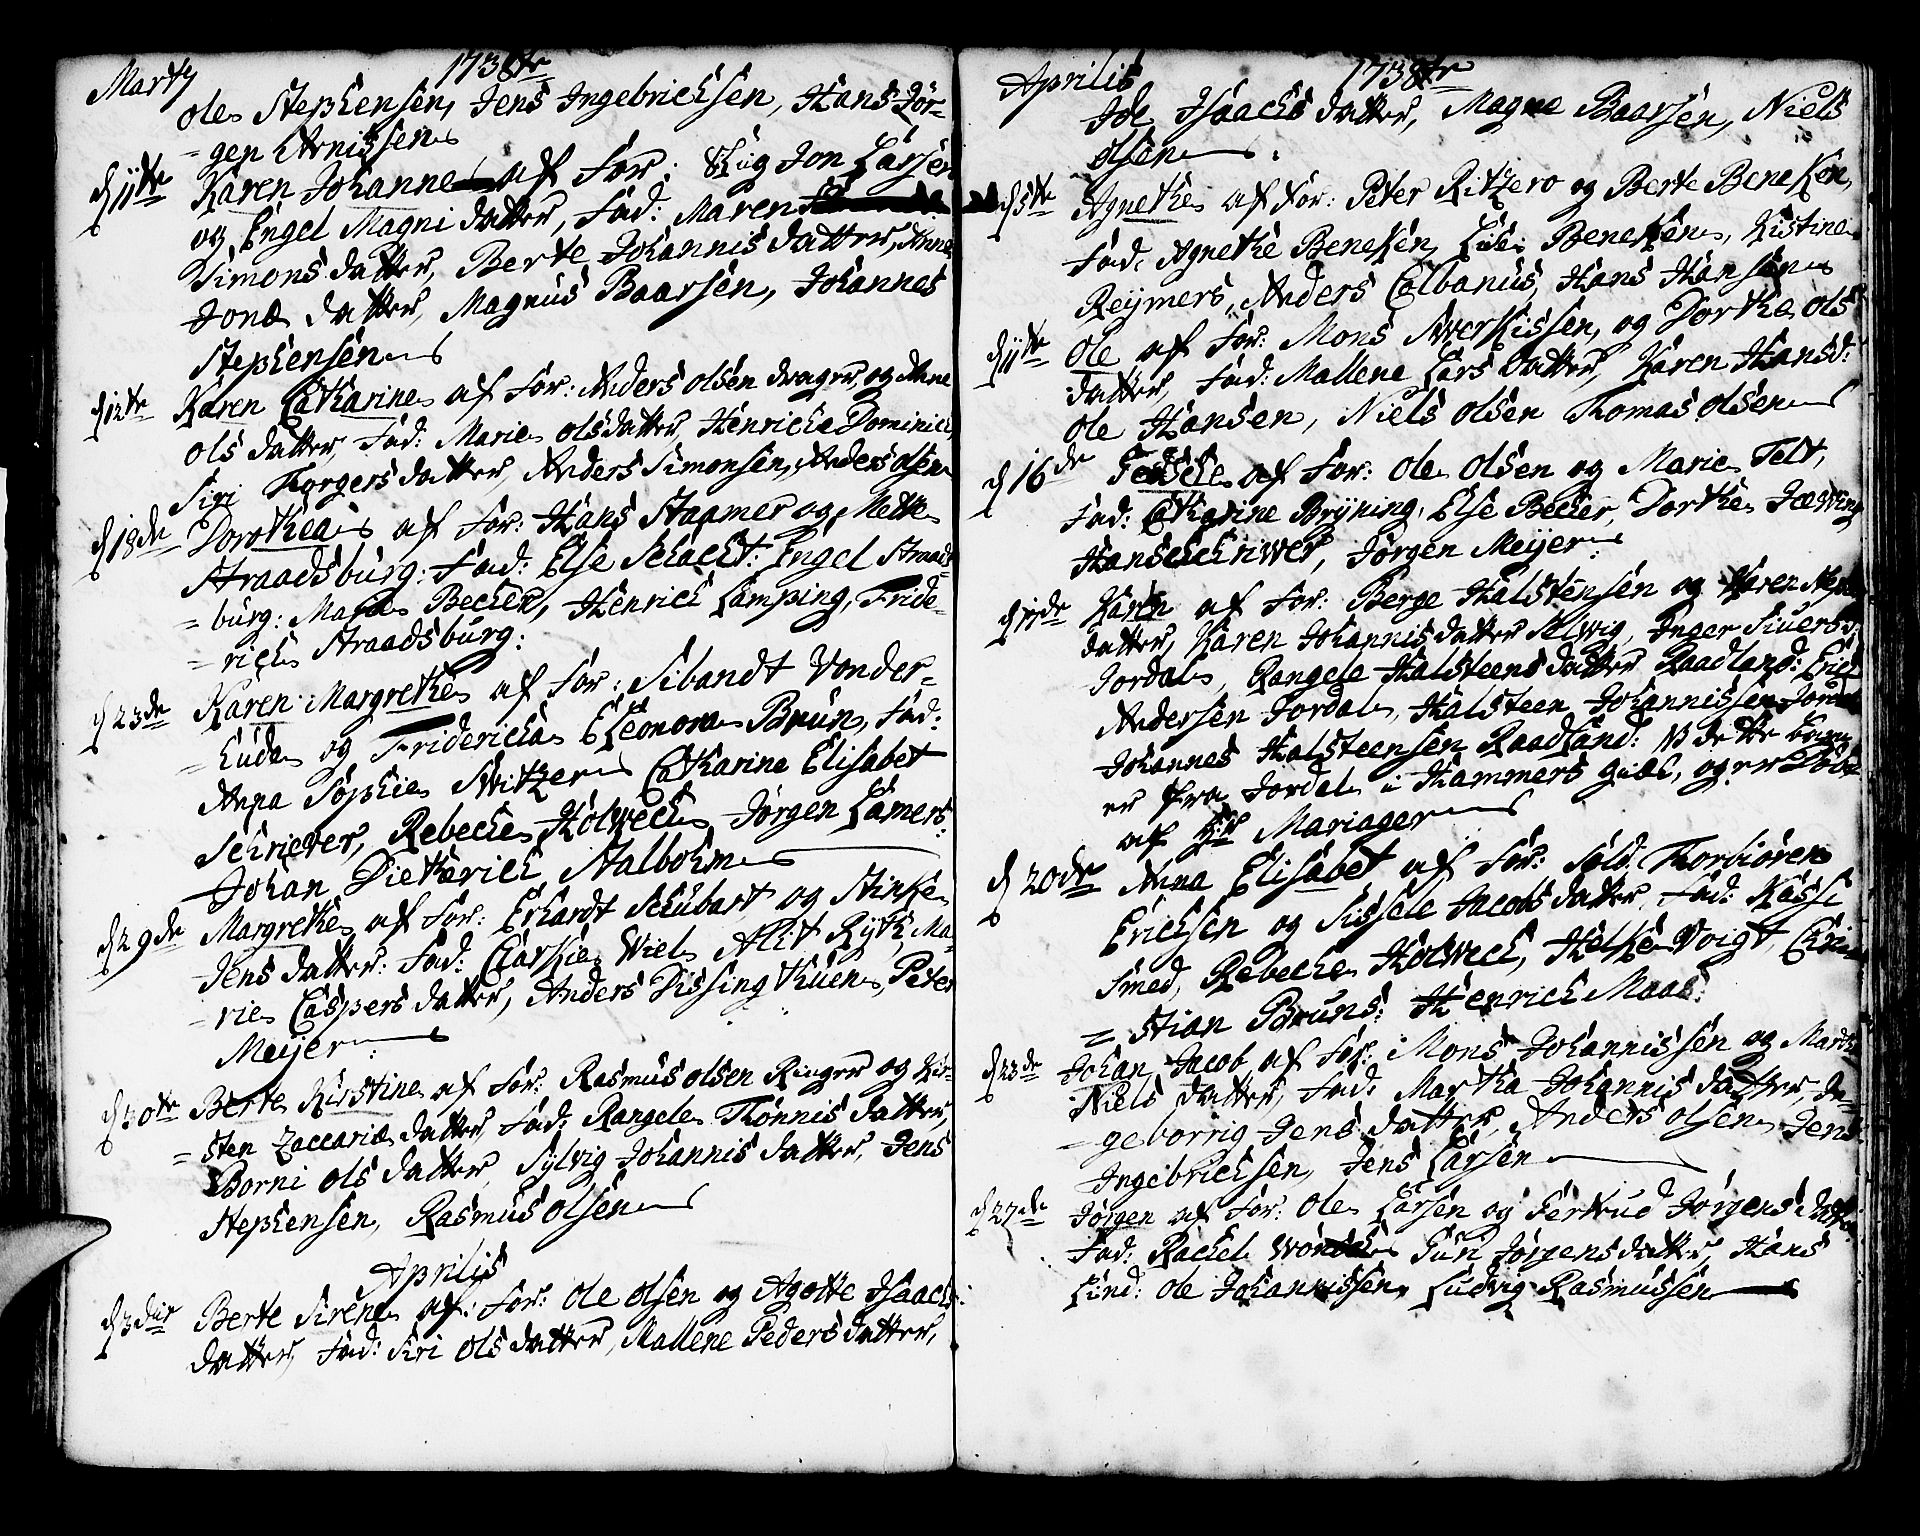 Martij 1738tr
Ole Stephensen, Jens Ingebrichsen, Hans Jör-
=gen Arnissen
d 11te Karen Johanne af For: Lüg Jon Larsen
og Engel Magni datter, Fad: Maren
Simons datter, Berte Johannis datter, Anne
Jonæ datter, Magnus Baarsen, Johannes
Stephensen
d 12te Karen Catharine af For: Anders Olsen drager, og Anne
Ols datter, Fad: Marie Olsdatter, Henriche Dominich,
Siri Thorgersdatter, Anders Simonsen, Anders Olsen
d 18de Dorothea af For: Hans Staamer og Mette
Straadsburg: Fad: Else Schacht: Engel Straads-
=burg: Becher, Henrich Lamping, Fride-
=rich Straadsburg:
d 23de Karen Margrethe af For: Sibandt Vonder-
=Luda og Fridericha Eleonora Brun, Fad:
Anna Sophie Switzer Catharine Elisabet
Schriever, Rebeche Holwech, Jörgen Lamers:
Johan Dietherich Stalbohm
d 29de Margrethe af For: Erhardt Schubart og Stinke
Jens datter: Fad: Wiel, Alit Ryth, Ma-
=rie Caspers datter, Anders Dissing Peter
Meijer
d 30te Berte Kirstine af For: Rasmus Olsen Ringer og Kir-
=sten Zaccariæ datter, Fad: Rangele Thönnis datter,
Borni Ols datter, Sylvig Johannis datter, Jens
Stephensen, Rasmus Olsen
Aprilis
d 3die Berte Sirene af: For: Ole Olsen og Agotte Isaachs:
datter, Fad: Siri Ols datter, Mallene Peders datter,
Aprilis 1738tr
Ide Isaachs datter, Magne Baarsen, Niels
Olsen
d 5te Agnethe af For: Peter Ritzero og Berte Beneken,
Fad: Agnethe Beneken, Lise Beneken, Kistine
Reymers, Anders Calbanus, Hans Hansen
d 11te Ole af For: Mons Swerkissen, og Dorthe Ols
datter, Fad: Mallene Lars datter, Karen Hansd:
Ole Hansen, Niels Olsen Thomas Olsen
d 16de Gesche af For: Ole Olsen og Marie Felt,
Fad: Catharine Bryning, Else Becher, Dorthe
Hans Jörgen Meijer
d 17de Karen af For: Berge Halstensen og Karen
datter, Karen Johannis datter Selwig, Inger Siuersd:
Jordal, Rangele Halsteens datter Raadland: Erich
Andersen Jordal, Halsteen Johannissen Jordal
Johannes Halsteensen Raadland: NB dette barn
er fra Jordal i Hammers giæl, og er
af Hr Mariager
d 20de Anna Elisabet af For: Sold. Thorbiören
Erichsen og Sissele Jacobs datter, Fad: Kasse
Smed, Rebeche Holwech, Helke Voigt, Chri-
=stian Bruns: Henrich Maas:
d 23de Johan Jacob af For: Mons Johannissen og Marthe
Niels datter, Fad: Martha Johannis datter, In-
=geborrig Jens datter, Anders Olsen, Jens
Ingebrichsen, Jens Larsen
d 27de Jörgen af For: Ole Larsen og Giertrud Jörgens datter
Fad: Rachel Guri Jörgens datter, Hans
Lind: Ole Johannissen, Ludvig Rasmussen